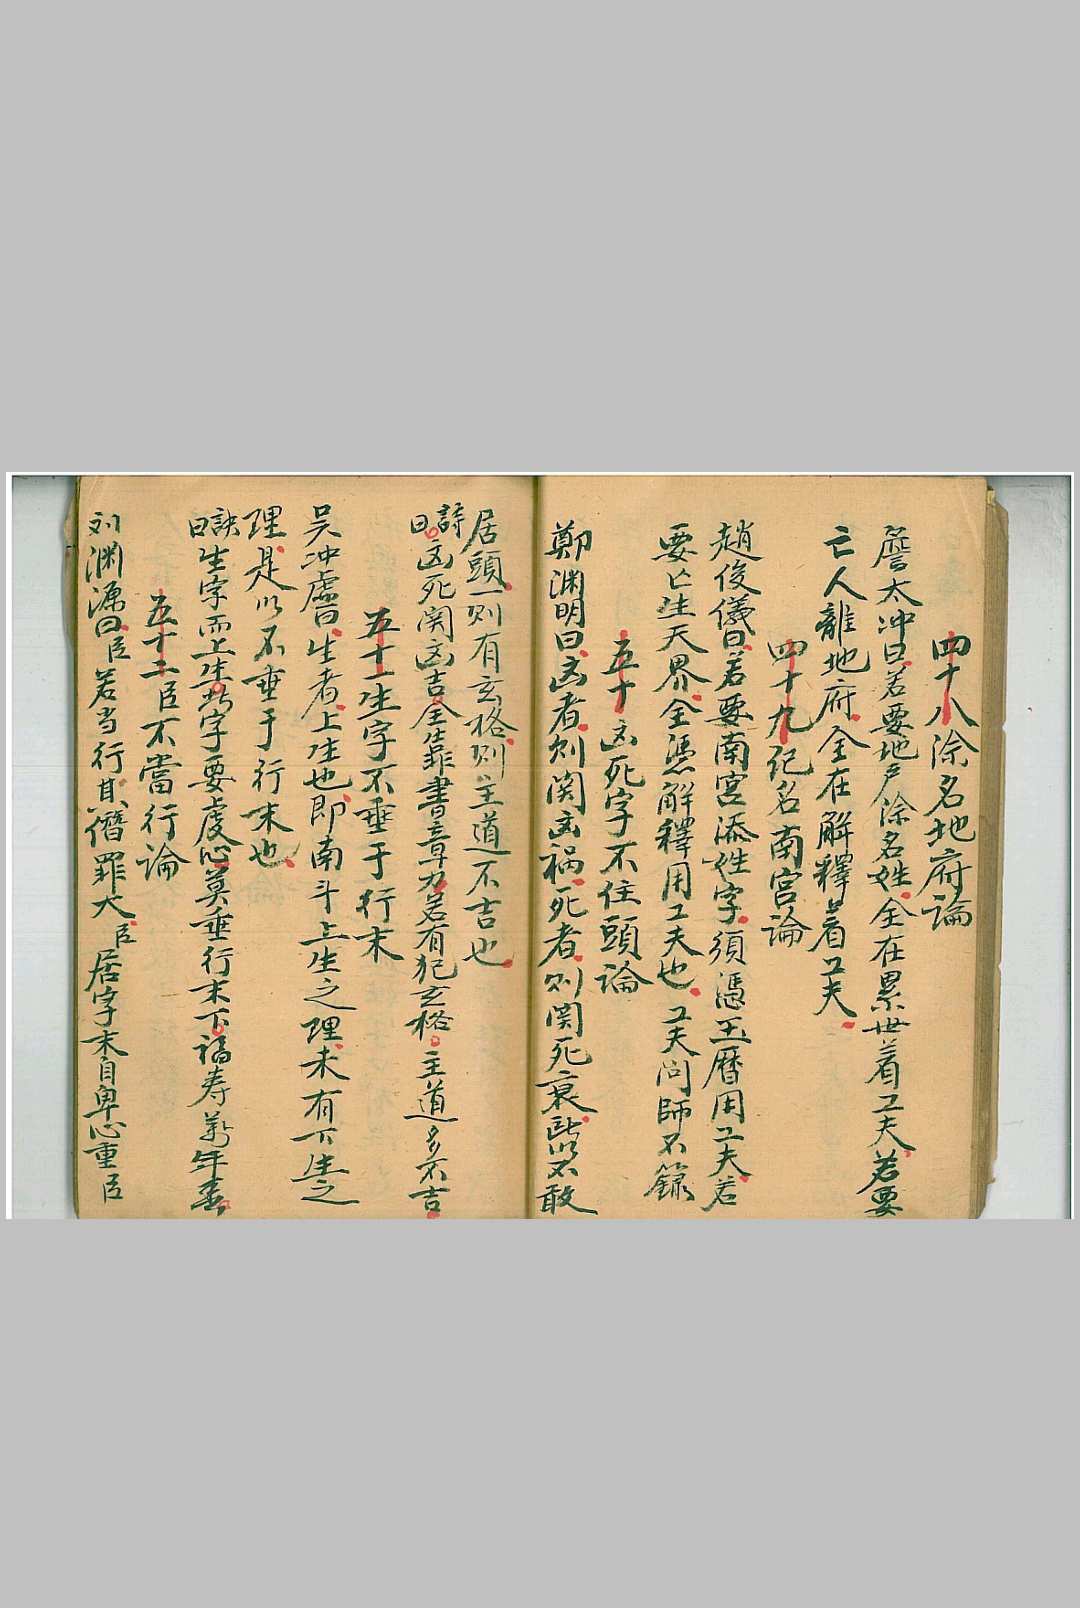 四十八除名地府論
詹太冲曰若要地户除名姓全在累世着工夫若要
亡人離地府全在解釋着工夫
四十九記名南宫論
趙俊儀曰若要南宫添姓字須憑玉曆用工夫若
要亡生天界全憑解釋用工夫也工夫问師不籙
五十凶死字不住頭論
鄭渊明曰凶者则関凶祸死者则関死衰此以不敢
居頭一则有玄格则主道不吉也
詩曰凶死関凶吉全靠書章力若有犯玄格主道多不吉
五十一生字不垂于行末
吴冲虚曰生者上生也即南斗上生之理未有下生之
理是以不垂于行末也
訣曰生字而上生此字要虔心莫垂行末下福寿萬年春
五十二臣不當行論
刘渊源曰臣若当行其僭罪大臣居字末自卑心重臣